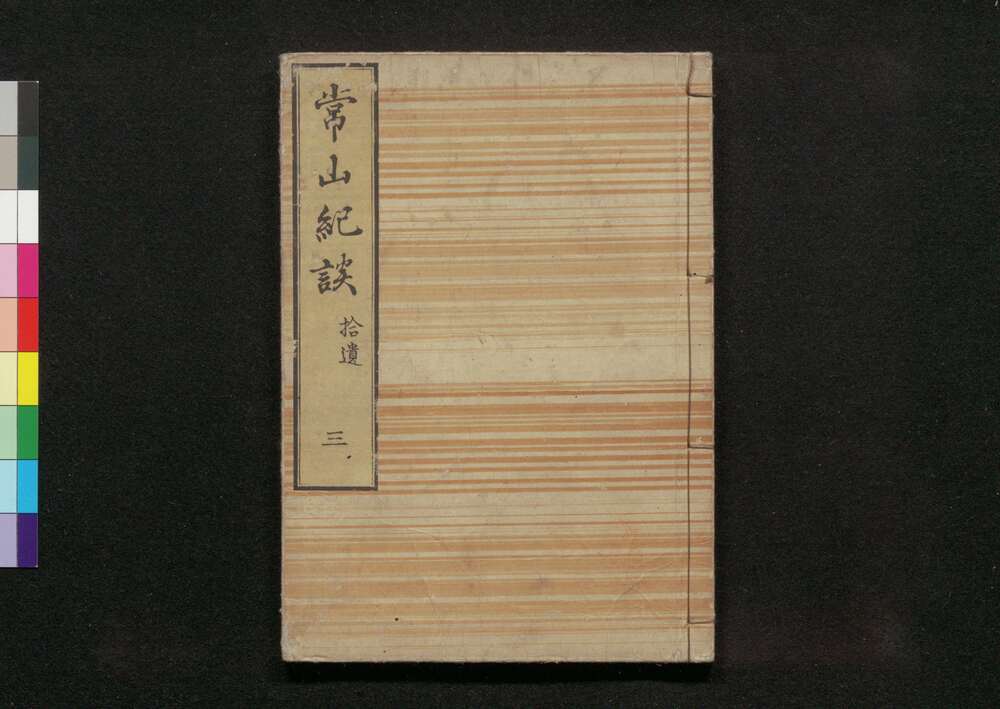 常山紀談
拾遺
三